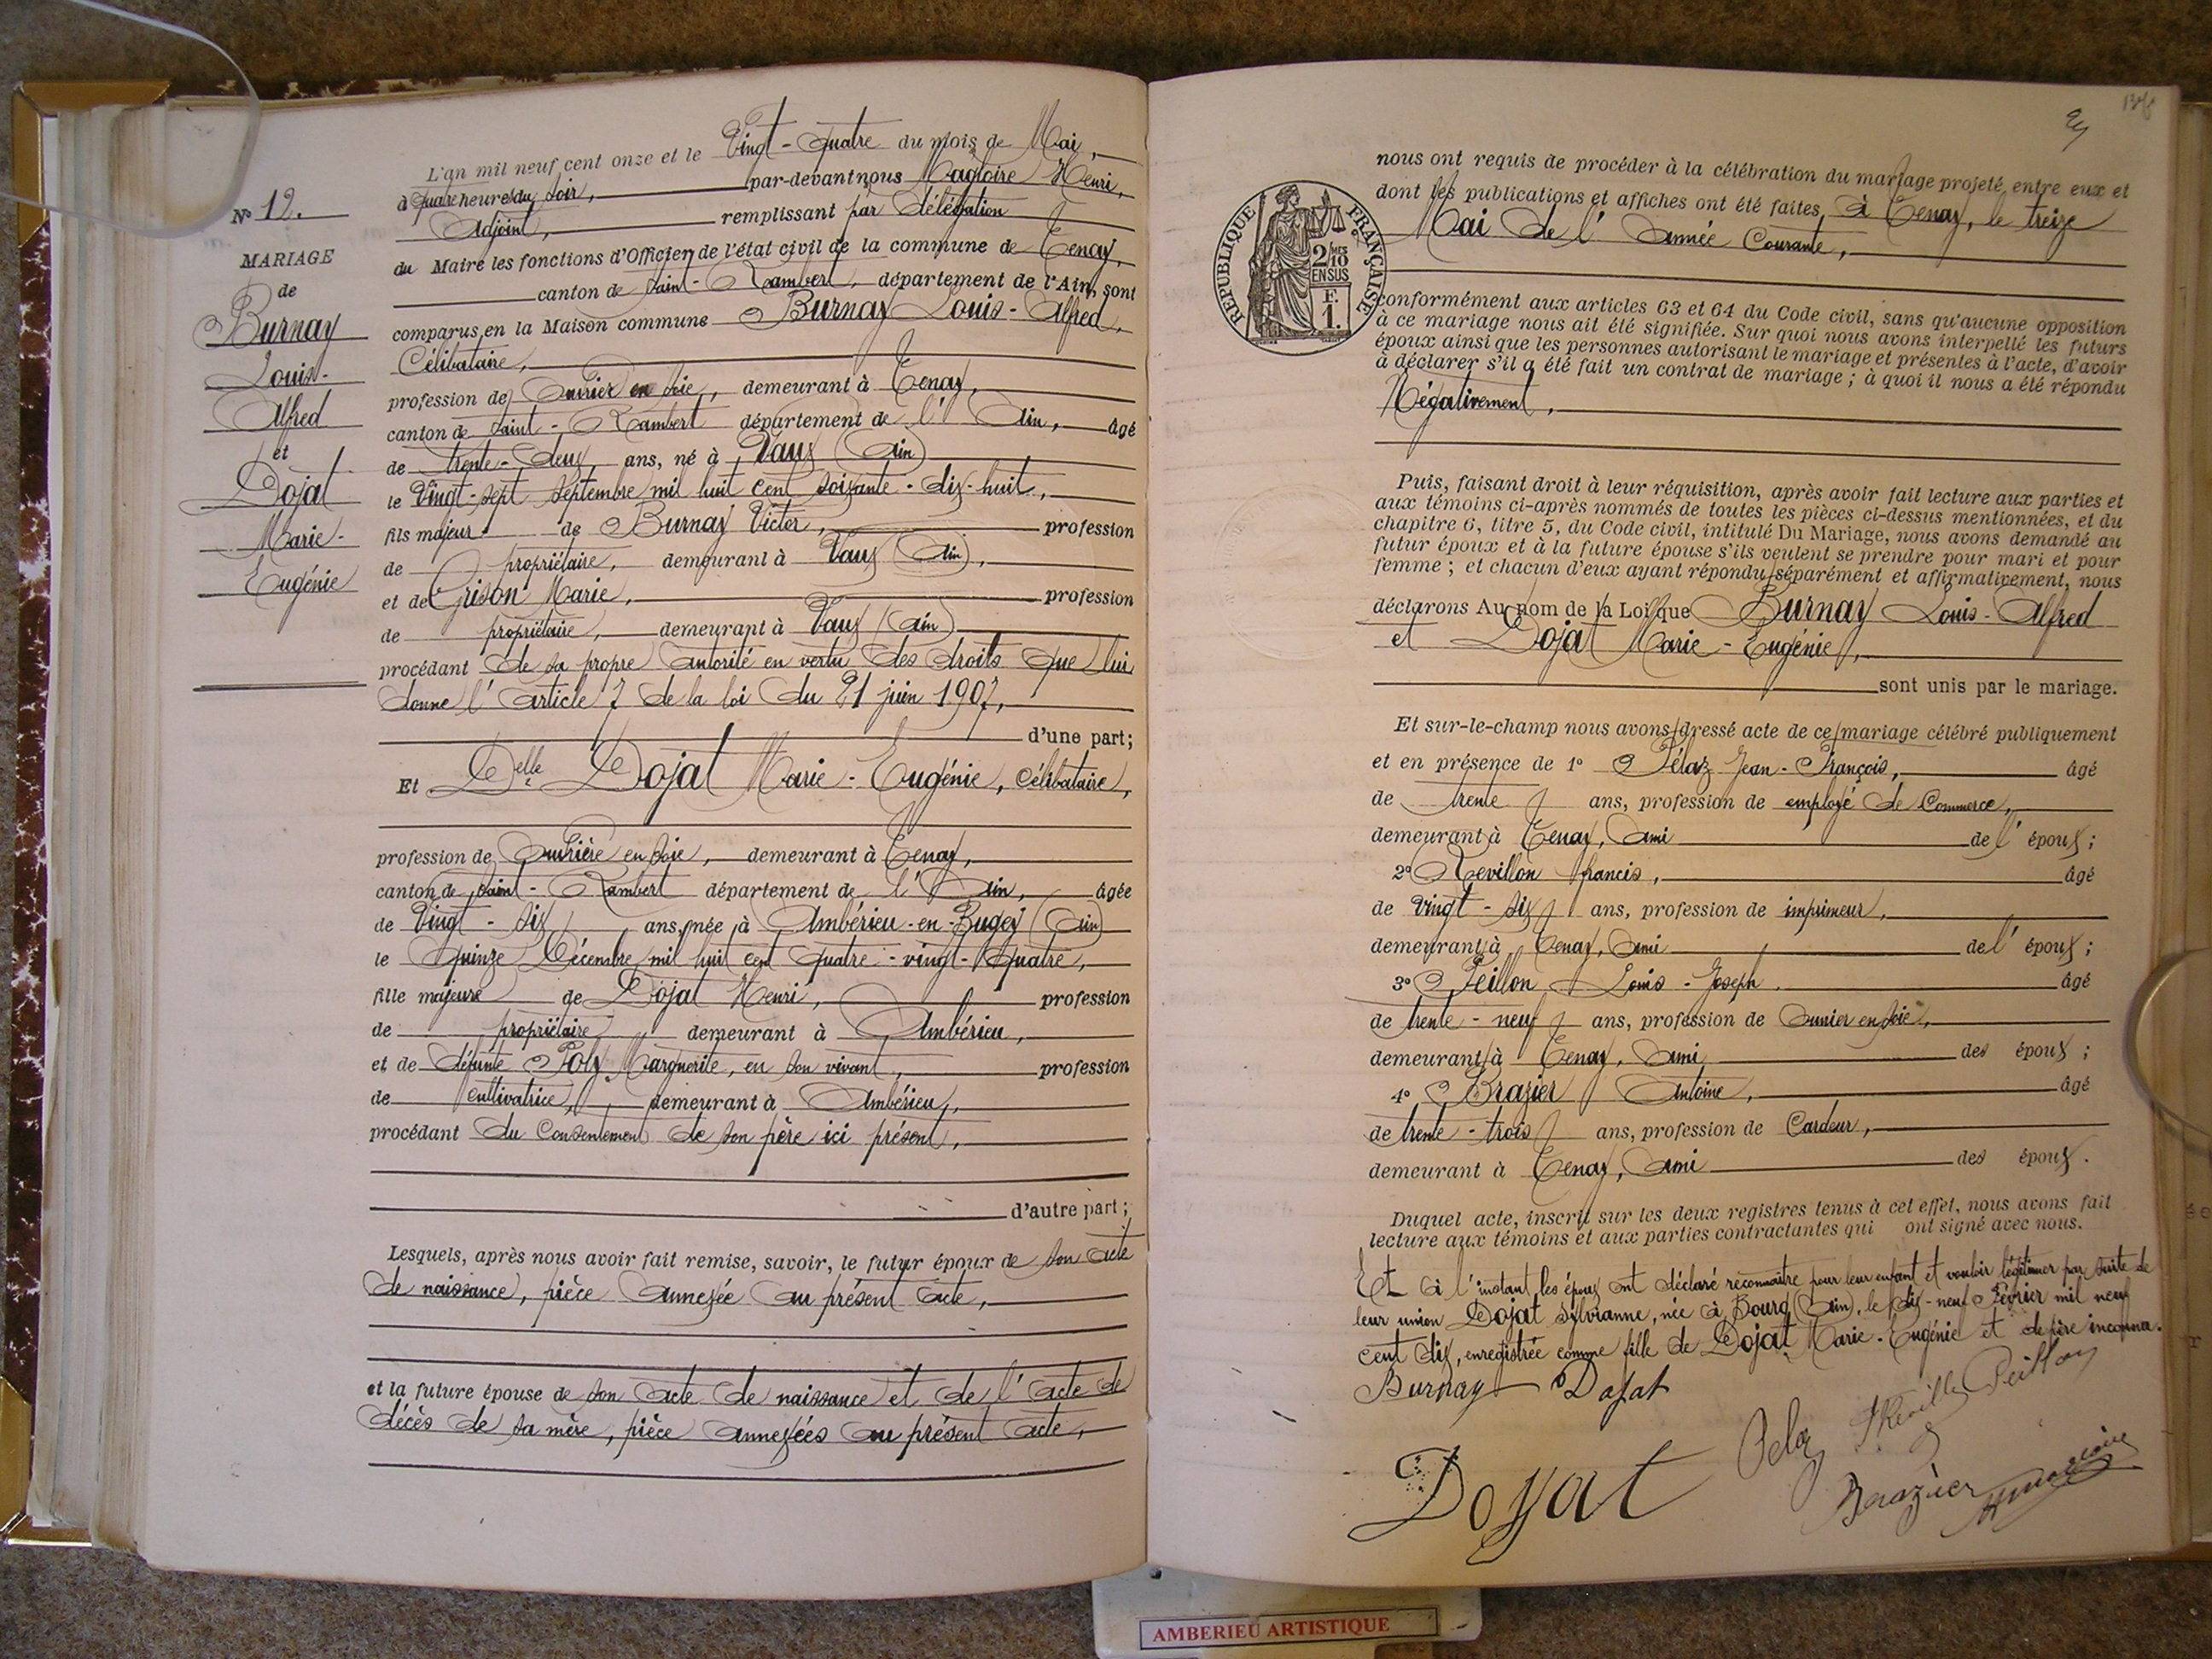 L'an mil neuf cent onze et le Vingt-Quatre du mois de Mai,
à quatre heures du soir, par-devant nous Magloire Henri,
Adjoint, remplissant par délégation
du Maire les fonctions d'Officier de l'état civil de la commune de Tenay,
canton de Saint-Rambert, département de l'Ain, sont
comparus en la Maison commune Burnay Louis-Alfred,
Célibataire,
profession de Ouvrier en soie, demeurant à Tenay,
canton de Saint-Rambert département de l'Ain, âgé
de trente-deux ans, né à Vaux (Ain)
le Vingt-sept Septembre mil huit cent soixante-dix-huit,
fils majeur de Burnay Victor, profession
de propriétaire, demeurant à Vaux (Ain),
et de Grison Marie, profession
de propriétaire, demeurant à Vaux (Ain)
procédant de sa propre autorité en vertu des droits que lui
donne l'article 7 de la loi du 21 juin 1907,
d'une part;
Et Delle Dojat Marie-Eugénie, Célibataire,
profession de Ouvrière en soie, demeurant à Tenay,
canton de Saint-Rambert département de l'Ain, âgée
de Vingt-six ans, née à Ambérieu-en-Bugey (Ain)
le Quinze Décembre mil huit cent quatre-vingt-quatre,
fille majeure de Dojat Henri, profession
de propriétaire demeurant à Ambérieu,
et de défunte Joly Marguerite, en son vivant, profession
de cultivatrice, demeurant à Ambérieu,
procédant du Consentement de son père ici présent,
d'autre part;
Lesquels, après nous avoir fait remise, savoir, le futur époux de son acte
de naissance, pièce annexée au présent acte,
et la future épouse de son acte de naissance et de l'acte de
décès de sa mère, pièce annexées au présent acte,
No 12.
MARIAGE
de
Burnay
Louis-
Alfred
et
Dojat
Marie-
Eugénie
nous ont requis de procéder à la célébration du mariage projeté entre eux et
dont les publications et affiches ont été faites, à Tenay, le treize
Mai de l'année Courante,
RÉPUBLIQUE FRANÇAISE
2/10
EN SUS
F.
1.
conformément aux articles 63 et 64 du Code civil, sans qu'aucune opposition
à ce mariage nous ait été signifiée. Sur quoi nous avons interpellé les futurs
époux ainsi que les personnes autorisant le mariage et présentes à l'acte, d'avoir
à déclarer s'il a été fait un contrat de mariage; à quoi il nous a été répondu
Négativement,
Puis, faisant droit à leur réquisition, après avoir fait lecture aux parties et
aux témoins ci-après nommés de toutes les pièces ci-dessus mentionnées, et du
chapitre 6, titre 5, du Code civil, intitulé Du Mariage, nous avons demandé au
futur époux et à la future épouse s'ils veulent se prendre pour mari et pour
femme; et chacun d'eux ayant répondu séparément et affirmativement, nous
déclarons Au nom de la Loi que Burnay Louis-Alfred
et Dojat Marie-Eugénie,
sont unis par le mariage.
Et sur-le-champ nous avons dressé acte de ce mariage célébré publiquement
et en présence de 1o Pélaz Jean-François, âgé
de trente ans, profession de employé de Commerce,
demeurant à Tenay, ami de l'époux;
2o Revillon francis, âgé
de vingt-six ans, profession de imprimeur,
demeurant à Tenay, ami de l'époux;
3o Peillon Louis-Joseph. âgé
de trente-neuf ans, profession de Ouvrier en soie,
demeurant à Tenay, ami des époux;
4o Brazier Antoine, âgé
de trente-trois ans, profession de Cardeur,
demeurant à Tenay, ami des époux.
Duquel acte, inscrit sur les deux registres tenus à cet effet, nous avons fait
lecture aux témoins et aux parties contractantes qui ont signé avec nous.
Et à l'instant les époux ont déclaré reconnaître pour leur enfant et vouloir légitimer par suite de
leur union Dojat Sylvianne, née à Bourg (Ain), le dix-neuf Février mil neuf
cent dix, enregistrée comme fille de Dojat Marie-Eugénie et de père inconnu.
Burnay Dojat
Peillon
Pelaz
Dojat
Brazier
AMBERIEU ARTISTIQUE